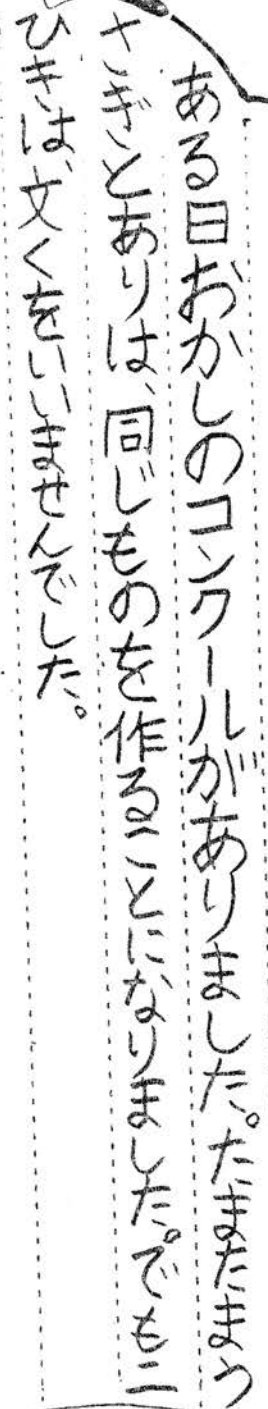 ある日おかしのコンクールがありました。たまたまう
さぎとありは、同じものを作ることになりました。でも二
ひきは、文くをいいませんでした。